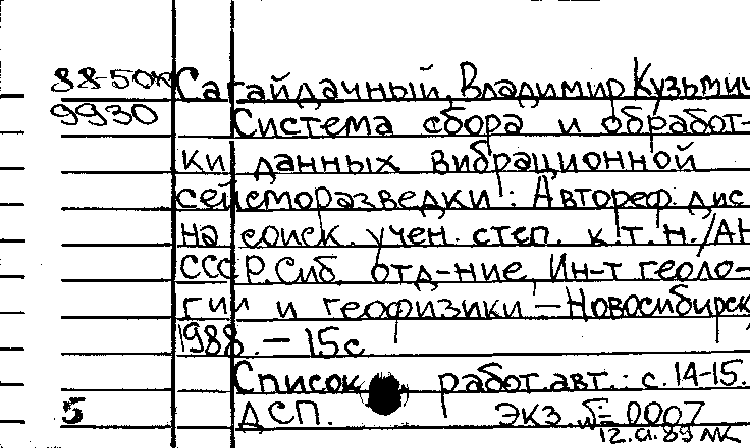 88-50к Сагайдачный, Владимир Кузьмич
9930 Система сбора и обработ-
ки данных вибрационной
сейсморазведки : Автореф. дис.
на соиск. учен. степ. к.т.н./АН
СССР. Сиб. отд-ние, Ин-т геоло-
гии и геофизики – Новосибирск,
1988. – 15 с.
Список работ авт.: с. 14-15.
5 ДСП. Экз. № 0007